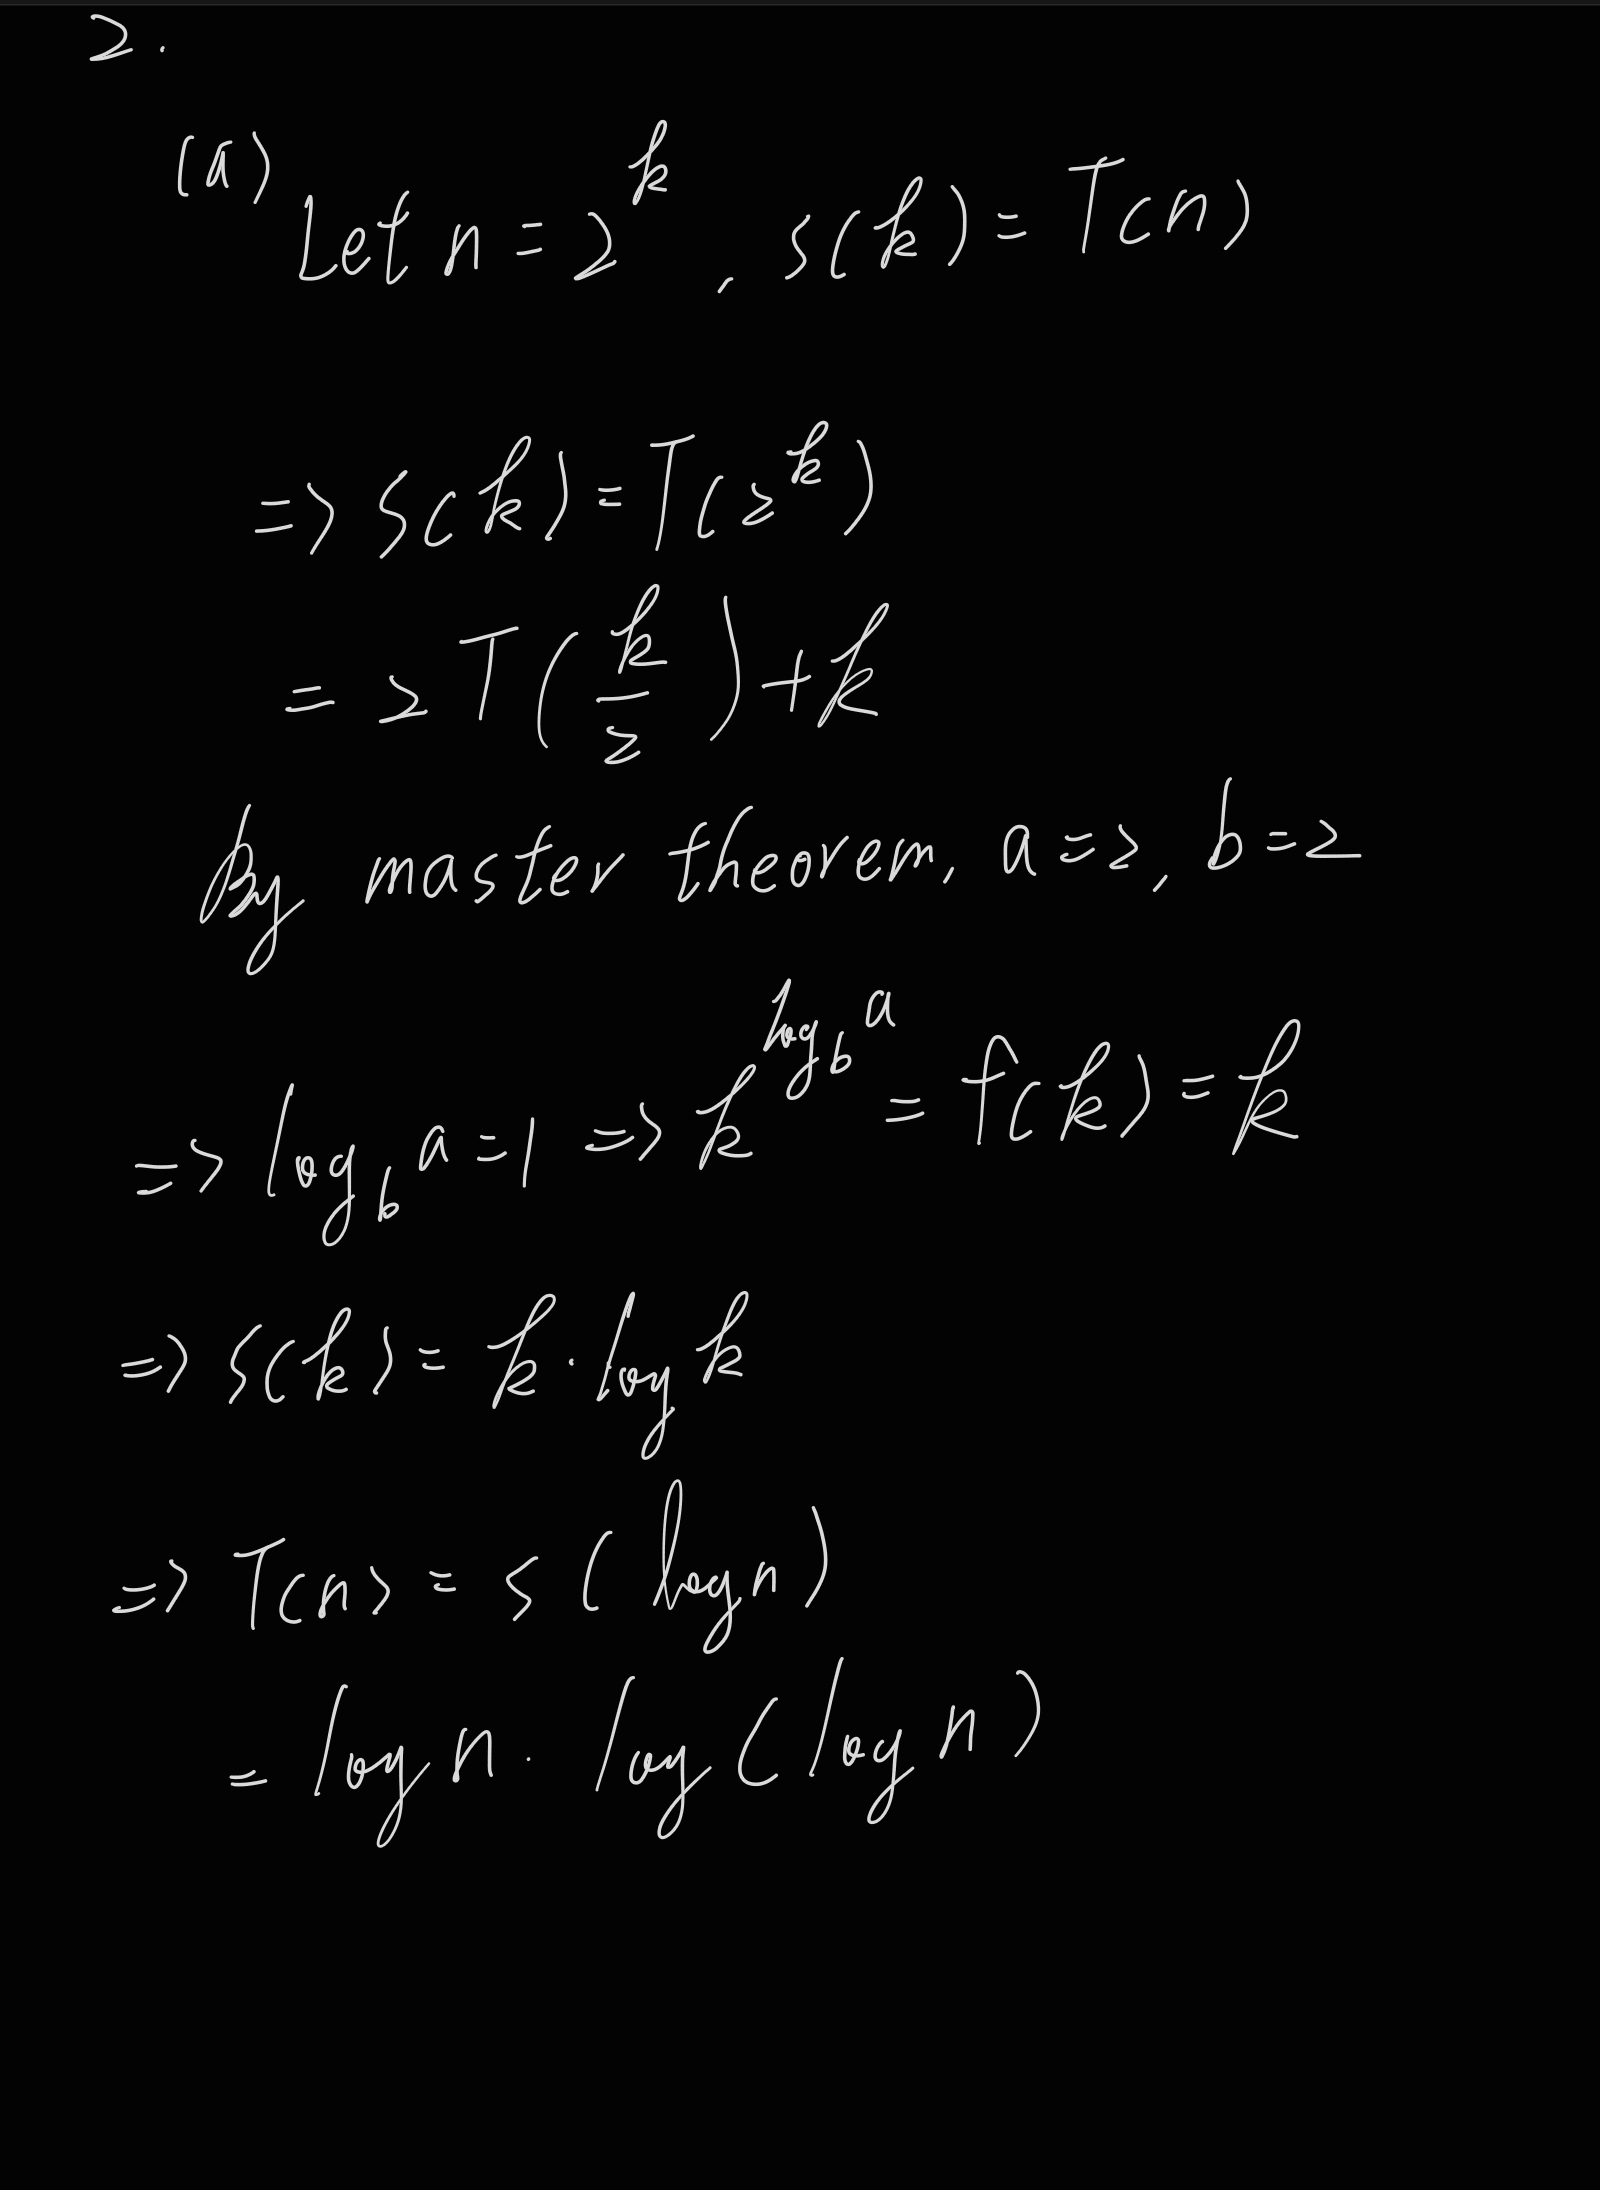 2.
(a)
Let n = 2^k , s(k) = T(n)
=> s(k) = T(2^k)
= 2T(k/2) + k
By master theorem, a = 2, b = 2
=> log_b a = 1 => k^(log_b a) = f(k) = k
=> s(k) = k · log k
=> T(n) = s(log n)
= log n · log(log n)